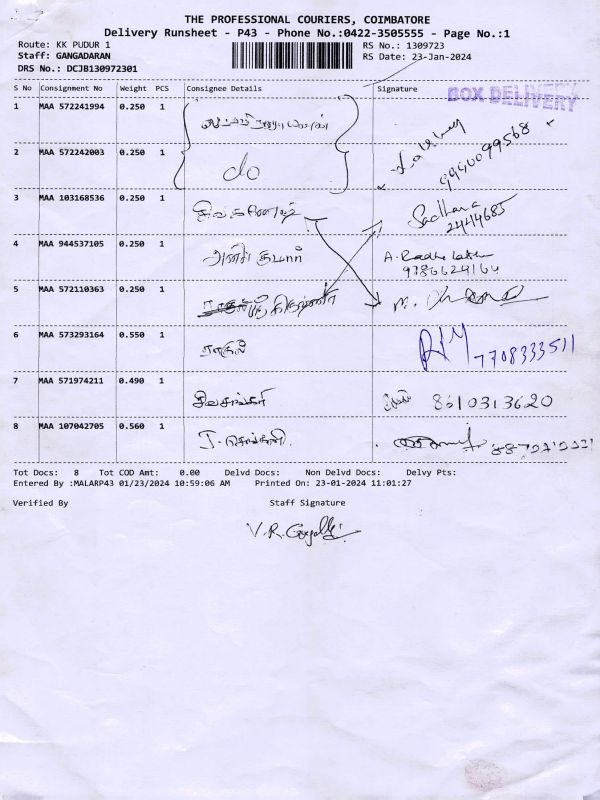 THE PROFESSIONAL COURIERS, COIMBATORE
Delivery Runsheet - P43 - Phone No.:0422-3505555 - Page No.:1
Route: KK PUDUR 1 RS No.: 1309723
Staff: GANGADARAN RS Date: 23-Jan-2024
DRS No.: DCJB130972301
S No Consignment No Weight PCS Consignee Details Signature
BOX DELIVERY
1 MAA 572241994 0.250 1
9940099568
2 MAA 572242003 0.250 1 do
3 MAA 103168536 0.250 1 Sadhana
2444685
4 MAA 944537105 0.250 1 அனில் குமார் A. Radha
9786624164
5 MAA 572110363 0.250 1
6 MAA 573293164 0.550 1 ராகுல் 7708333511
7 MAA 571974211 0.490 1 சிவசங்கர் 8610313620
8 MAA 107042705 0.560 1
Tot Docs: 8 Tot COD Amt: 0.00 Delvd Docs: Non Delvd Docs: Delvy Pts:
Entered By :MALARP43 01/23/2024 10:59:06 AM Printed On: 23-01-2024 11:01:27
Verified By Staff Signature